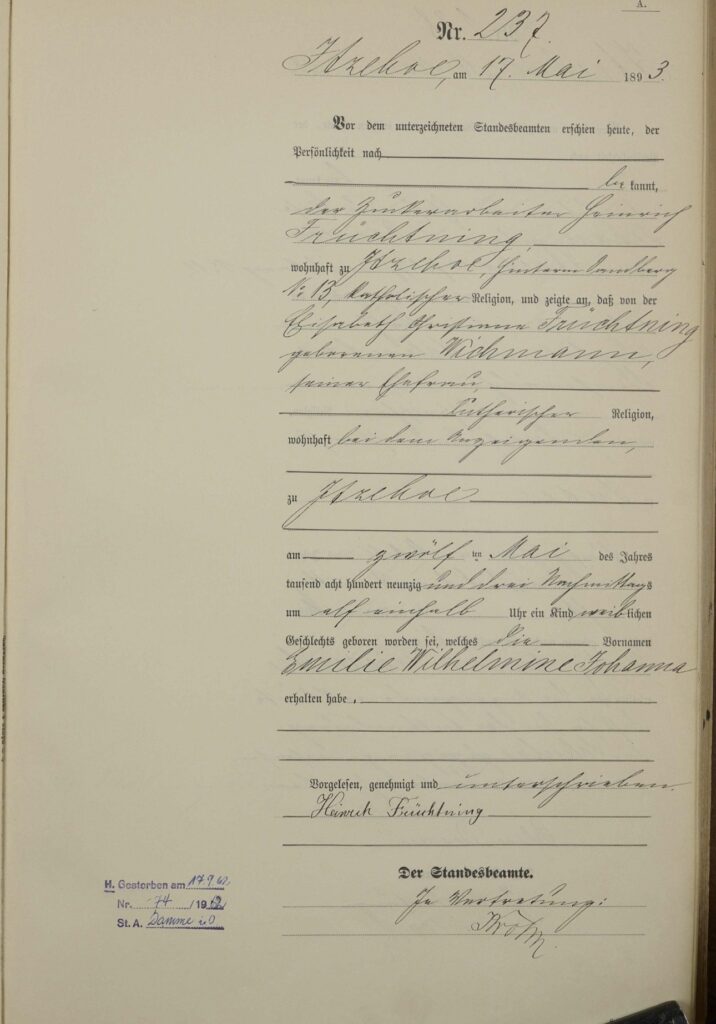 A.
Nr. 237.
Itzehoe, am 17. Mai 1893.
Vor dem unterzeichneten Standesbeamten erschien heute, der
Persönlichkeit nach
be kannt,
der Zuckerarbeiter Heinrich
Früchtning,
wohnhaft zu Itzehoe, hinterm Sandberg
No 13, katholischer Religion, und zeigte an, daß von der
Elisabeth Christiane Früchtning
geborenen Wichmann,
seiner Ehefrau,
lutherischer Religion,
wohnhaft bei dem Anzeigenden,
zu Itzehoe
am zwölf ten Mai des Jahres
tausend acht hundert neunzig und drei Nachmittags
um elf einhalb Uhr ein Kind weib lichen
Geschlechts geboren worden sei, welches die Vornamen
Emilie Wilhelmine Johanna
erhalten habe.
Vorgelesen, genehmigt und unterschrieben.
Heinrich Früchtning
Der Standesbeamte.
In Vertretung:
H. Gestorben am 17.9.62
Nr. 74 /1962
St. A. Damme i.O